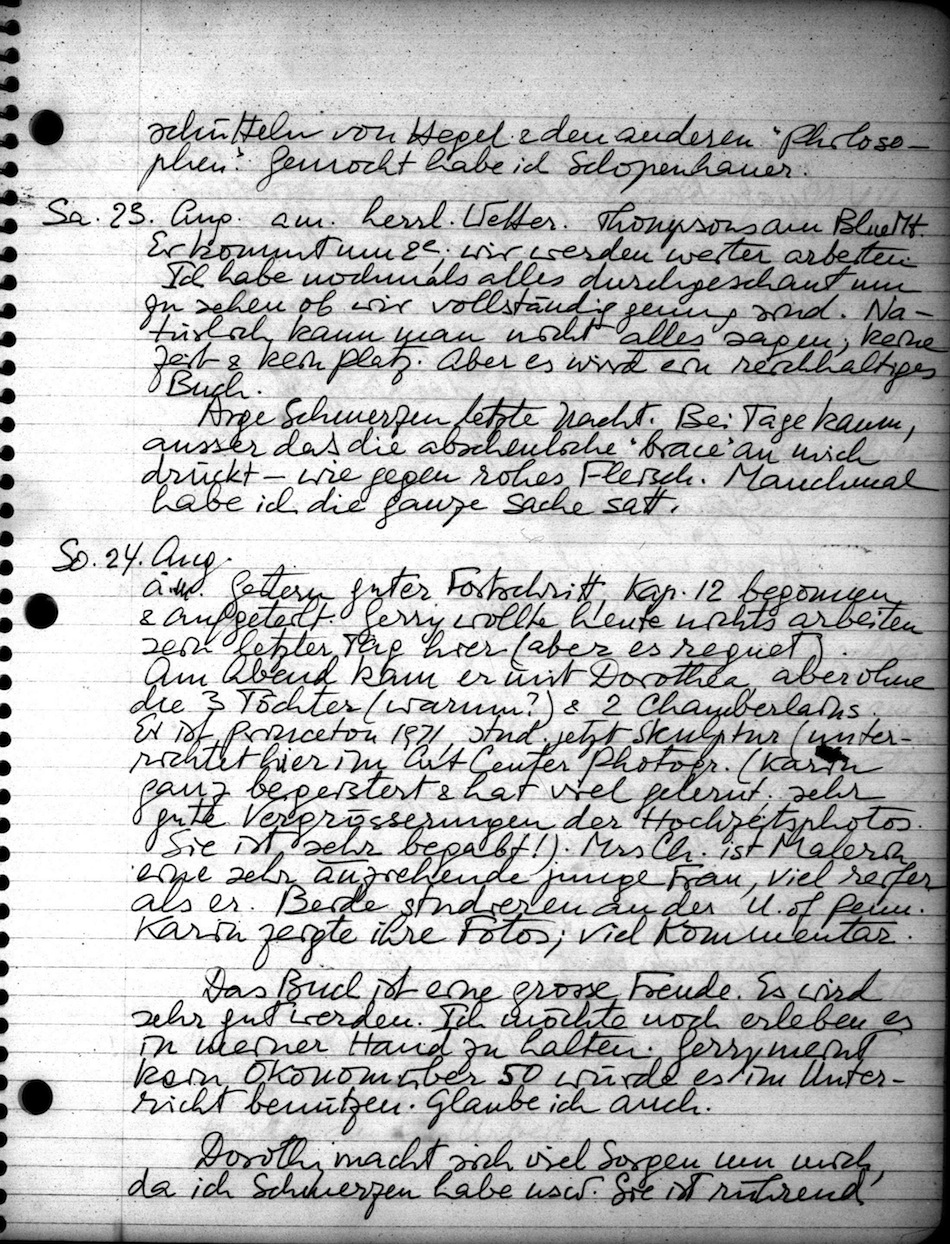 schütteln von Hegel & den anderen "Philoso-
phen". Gemocht habe ich Schopenhauer.
Sa. 23. Aug. am. herrl. Wetter. Thompsons am Blue Mt.
Er kommt um 2e. wir werden weiter arbeiten.
Ich habe nochmals alles durchgeschaut um
zu sehen ob wir vollständig genug sind. Na-
türlich kann man nicht alles sagen, keine
Zeit & kein Platz. Aber es wird ein reichhaltiges
Buch.
Arge Schmerzen letzte Nacht. Bei Tage kaum,
ausser das die abscheuliche "brace" an mich
drückt – wie gegen rohes Fleisch. Manchmal
habe ich die ganze Sache satt.
So. 24. Aug.
a.m. Gestern guter Fortschritt. Kap. 12 begonnen
& aufgeteilt. Gerry wollte heute nichts arbeiten
sein letzter Tag hier (aber es regnet).
Am Abend kam er mit Dorothea, aber ohne
die 3 Töchter (warum?) & 2 Chamberlains.
Er ist Princeton 1971, stud. jetzt Skulptur (unter-
richtet hier im Art Center Photogr. (Karin
ganz begeistert & hat viel gelernt. sehr
gute Vergrösserungen der Hochzeitsphotos.
Sie ist sehr begabt!). Mrs Ch. ist Malerin,
eine sehr anziehende junge Frau, viel reifer
als er. Beide studieren an der U. of Penn.
Karin zeigte ihre Fotos; viel Kommentar.
Das Buch ist eine grosse Freude. Es wird
sehr gut werden. Ich möchte noch erleben es
in meiner Hand zu halten. Gerry meint
kein Ökonom über 50 würde es im Unter-
richt benützen. Glaube ich auch.
Dorothy macht sich viel Sorgen um mich,
da ich Schmerzen habe usw. Sie ist rührend,